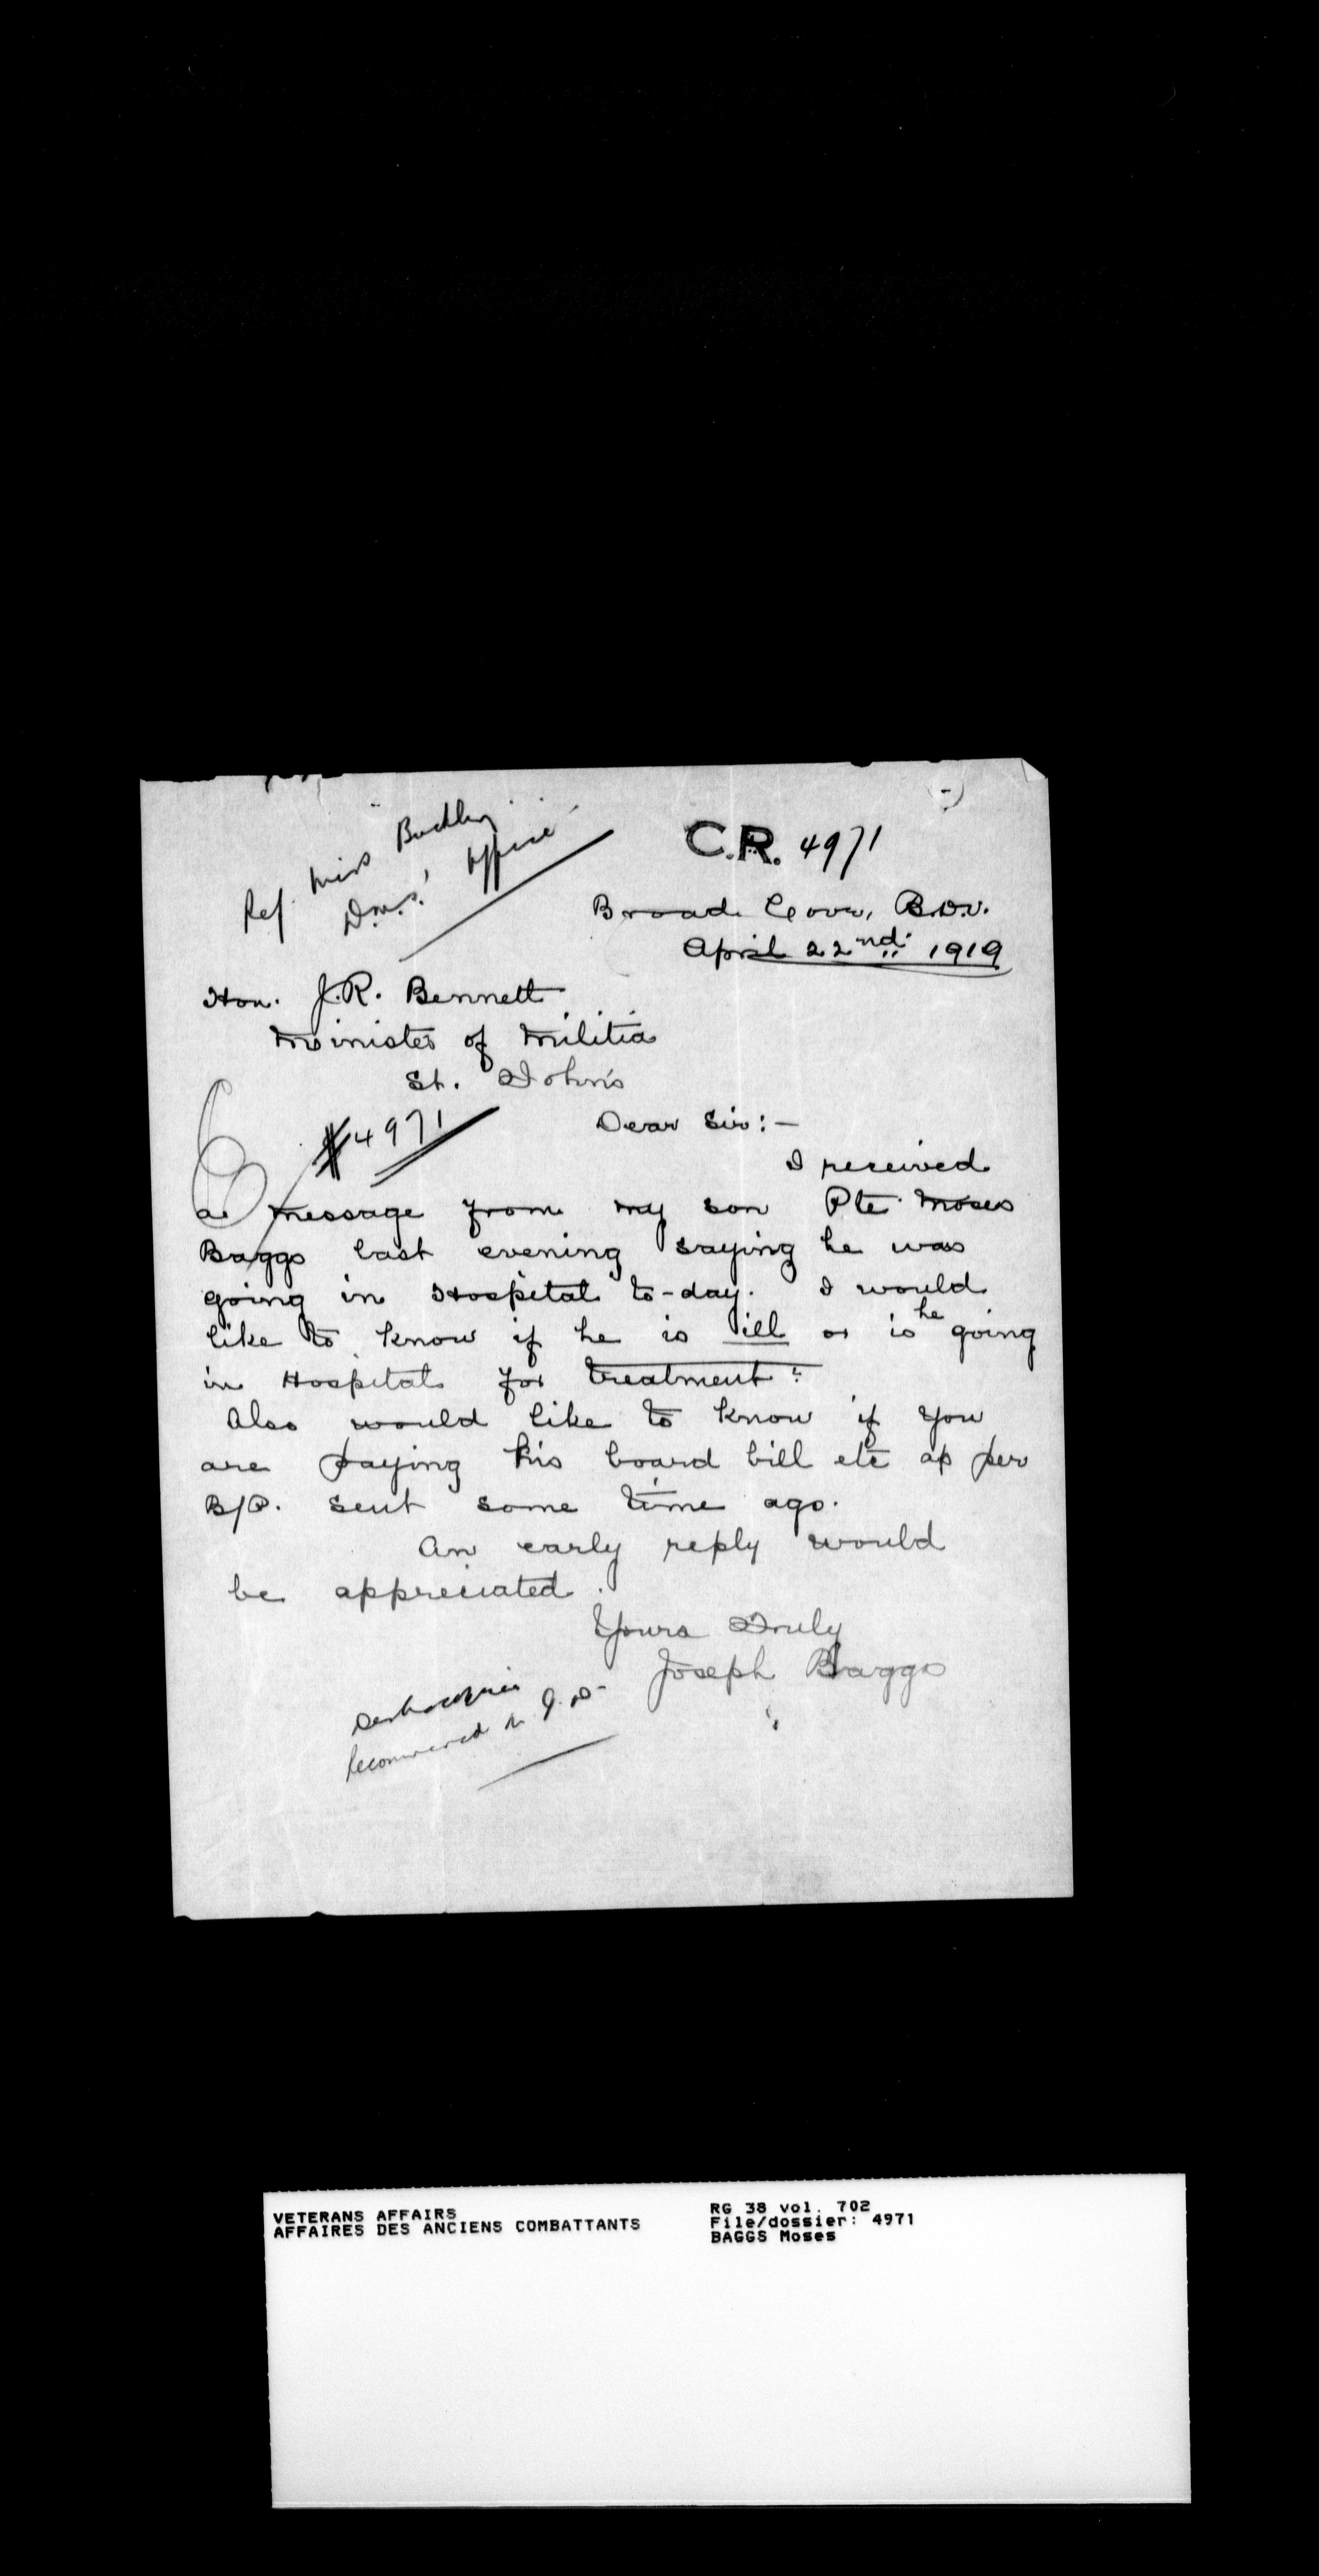 Ref. Miss
D.M.S.' Office
C.R. 4971
Broad Cove, B.D.V.
April 22nd. 1919
Hon. J.R. Bennett
Minister of Militia
St. John's
#4971
Dear Sir:-
I received
a message from my son Pte Moses
Baggs last evening saying he was
going in Hospital to-day. I would
like to know if he is ill or is he going
in Hospital for treatment?
Also would like to know if you
are paying his board bill etc as per
B/P. sent some time ago.
An early reply would
be appreciated.
Yours Truly
Joseph Baggs
VETERANS AFFAIRS
AFFAIRES DES ANCIENS COMBATTANTS
RG 38 vol. 702
File/dossier: 4971
BAGGS Moses